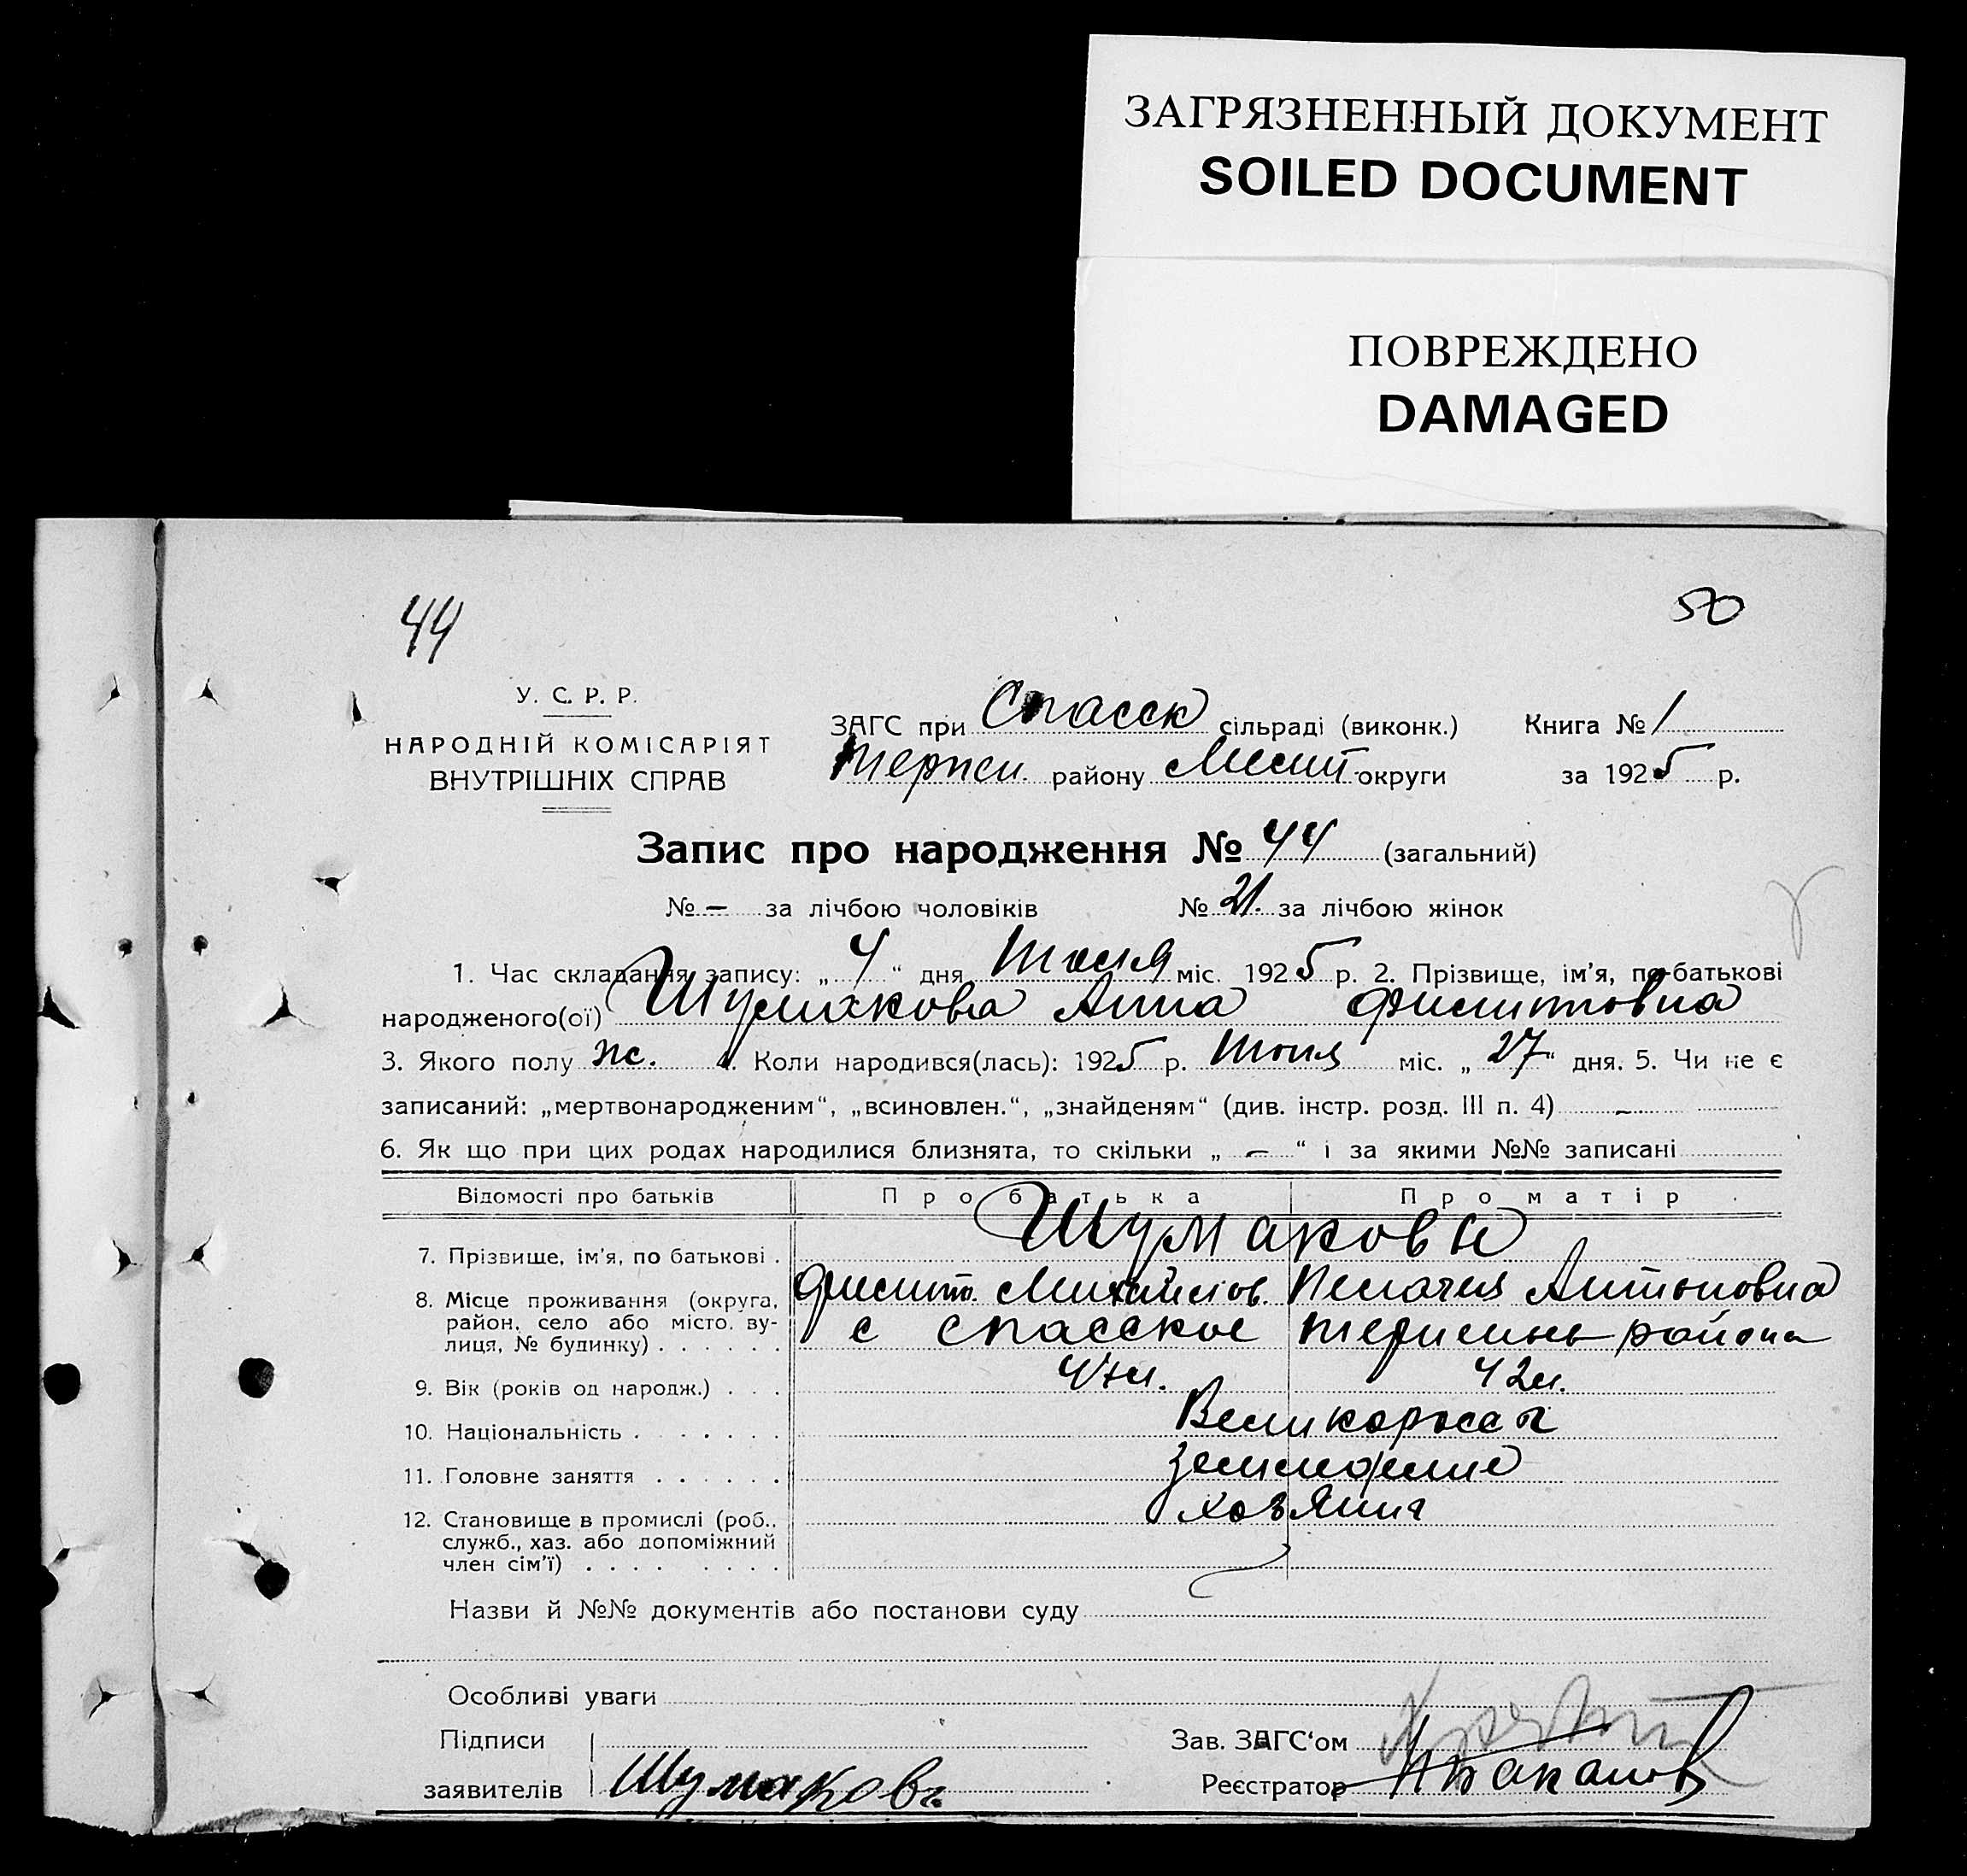 ЗАГРЯЗНЕННЫЙ ДОКУМЕНТ
SOILED DOCUMENT
ПОВРЕЖДЕНО
DAMAGED
44
50
У. С. Р. Р.
НАРОДНІЙ КОМІСАРІЯТ
ВНУТРІШНІХ СПРАВ
ЗАГС при Спасск сільраді (виконк.) Книга № 1
району округи за 1925 р.
Запис про народження № 44 (загальний)
№ — за лічбою чоловіків № 21. за лічбою жінок
1. Час складання запису: „ 4 “ дня міс. 1925 р. 2. Прізвище, ім'я, по-батькові
народженого(ої) Шумакова Анна Филиповна
3. Якого полу ж. 4. Коли народився(лась): 1925 р. міс. „ 27 “ дня. 5. Чи не є
записаний: „мертвонародженим“, „всиновлен.“, „знайденям“ (див. інстр. розд. III п. 4) –
6. Як що при цих родах народилися близнята, то скільки „ – “ і за якими №№ записані
Відомості про батьків Про батька Про матір
7. Прізвище, ім'я, по батькові . Шумаковы
8. Місце проживання (округа, Филип. Михайлов. Пелагея Антоновна
район, село або місто, ву-
лиця, № будинку) . . . . . . с Спасское района
9. Вік (років од народж.) . . . 47 л. 42 л.
10. Національність . . . . . . . Великоросси
11. Головне заняття . . . . . . земледелие
12. Становище в промислі (роб., хозяин
служб., хаз. або допоміжний
член сім'ї) . . . . . . . .
Назви й №№ документів або постанови суду
Особливі уваги
Підписи Зав. ЗАГС'ом
заявителів Шумаковъ Реєстратор